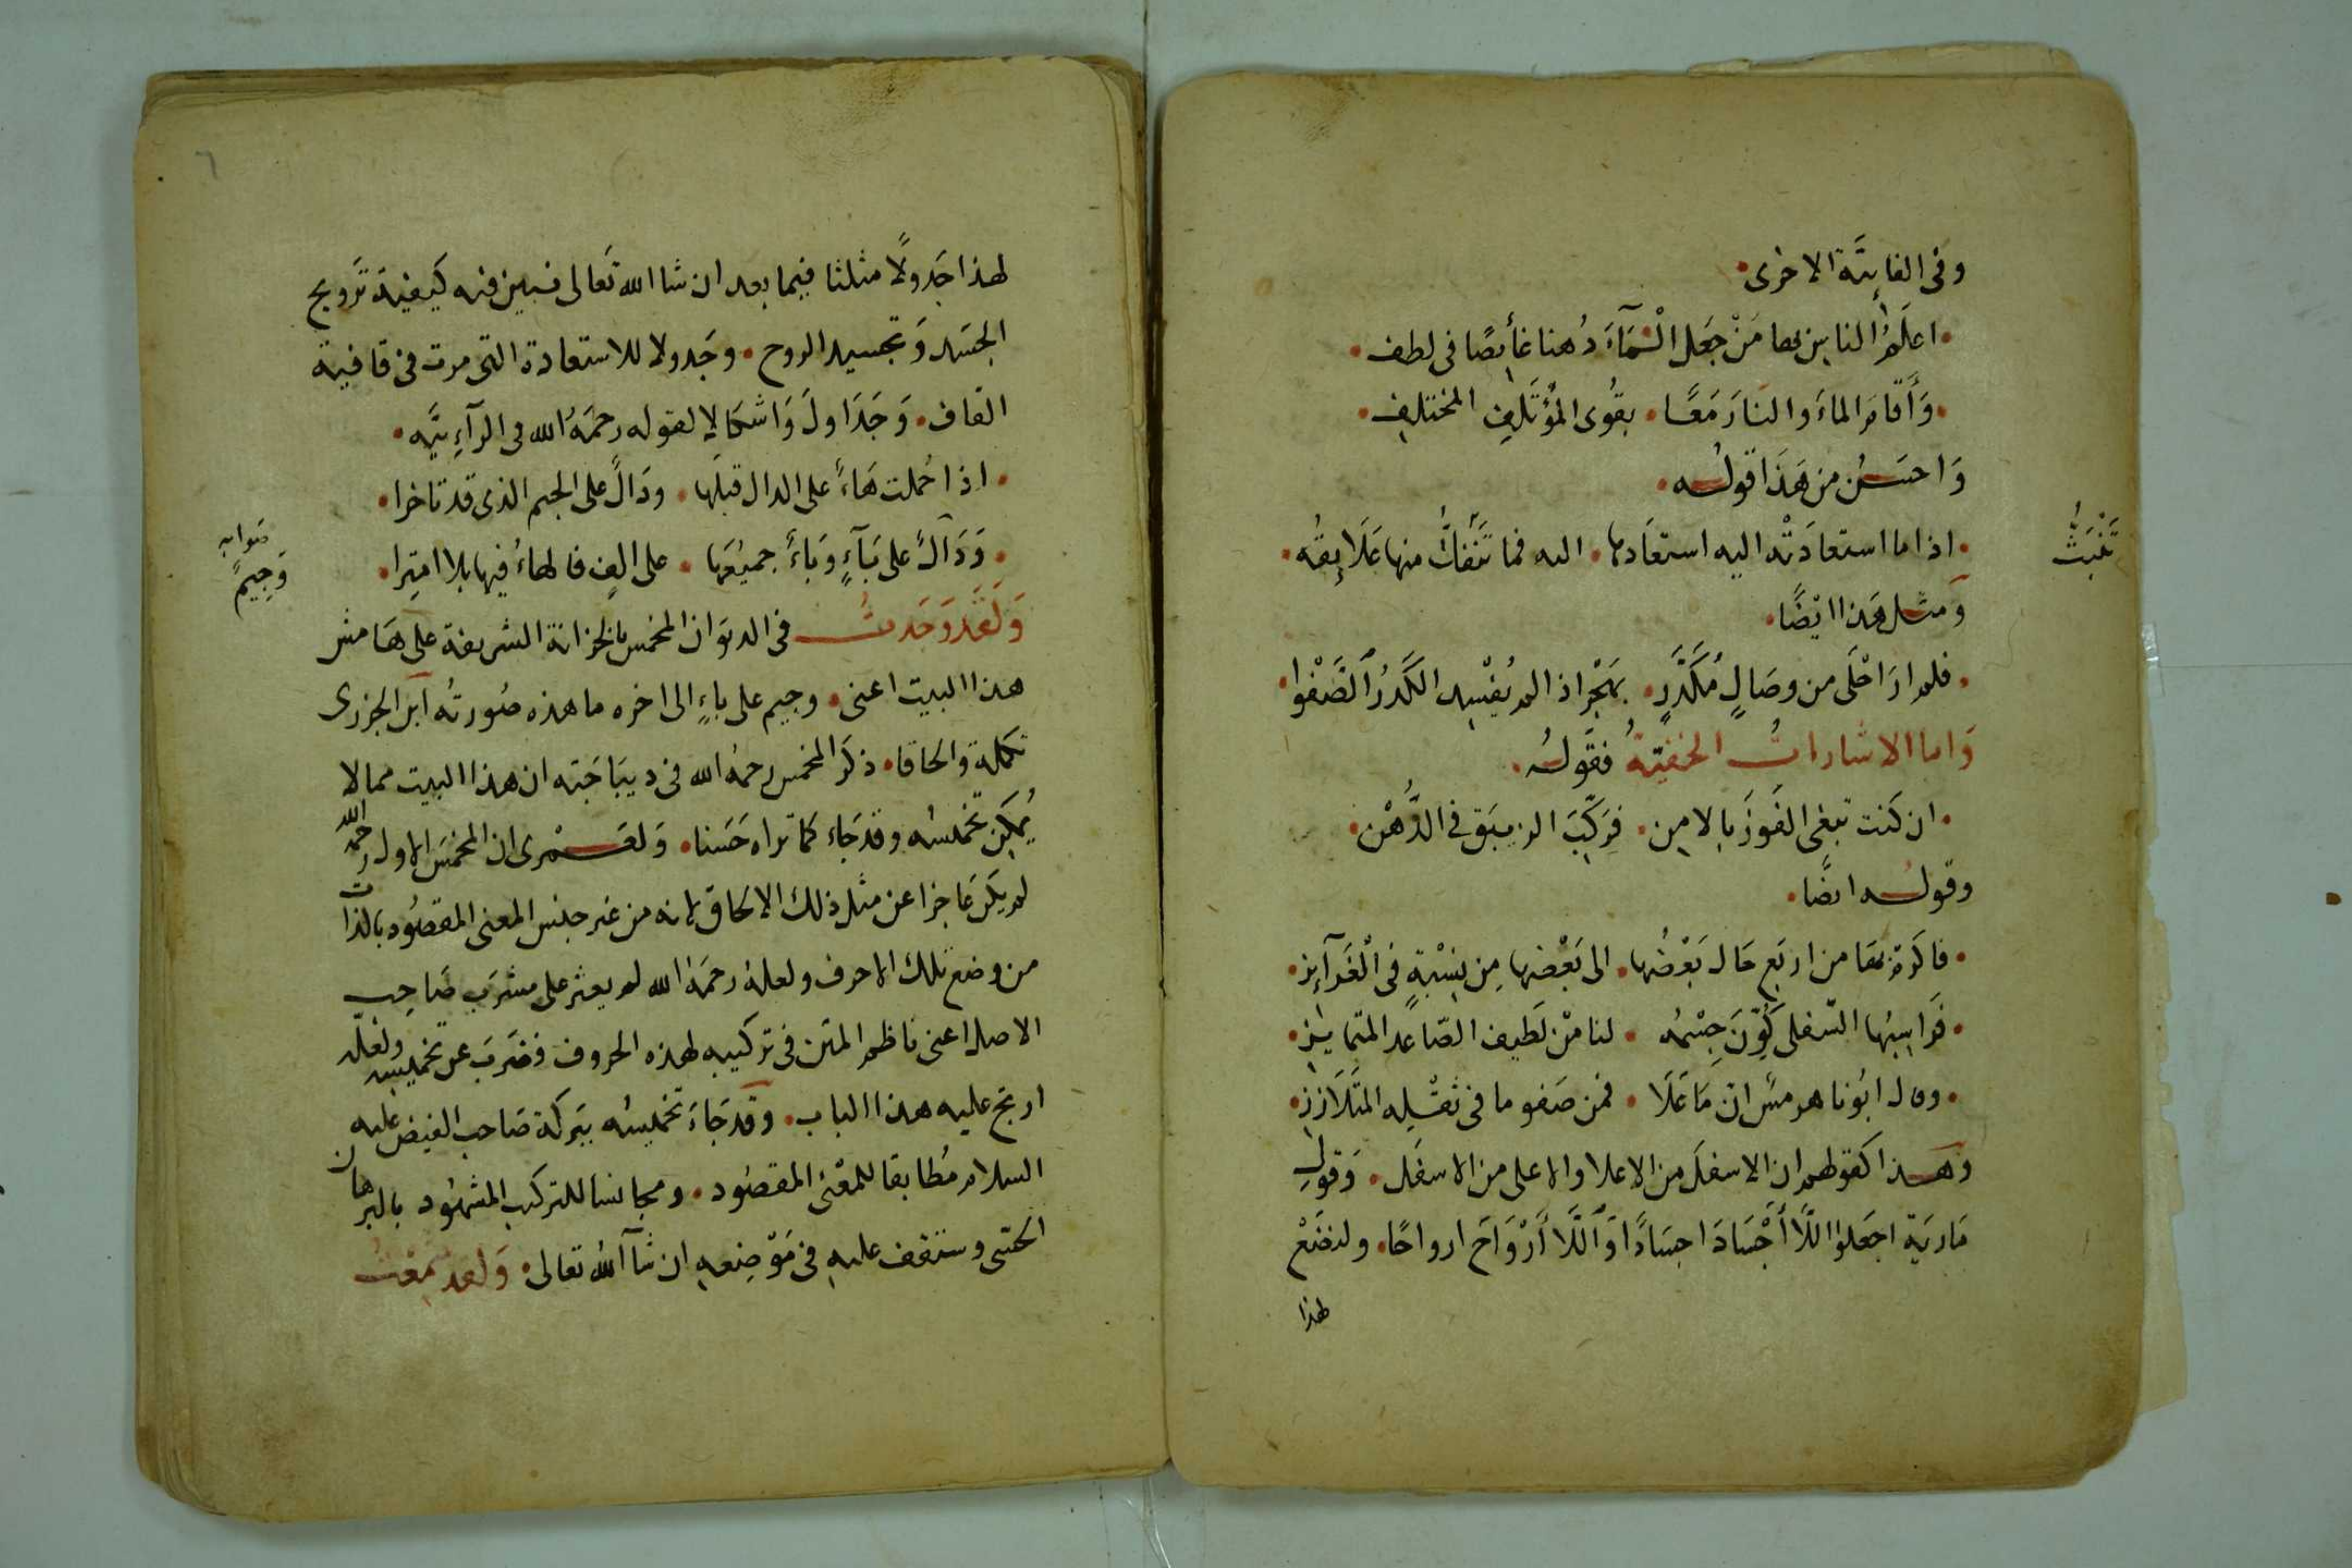 وفى الفائيَّة الاخرى
اعلَمُ الناس بها مَنْ جَعَل الْسَّمَآءَ دُهنا غائصًا فى لطف
وَأقامَ الماءَ والنارَ مَعًا بقُوى المُؤتَلِفِ المختلفِ
وَاحسَن من هَذا قوله
اذا ما استعادَتْه اليه استعَادها اليه فما تنفَكُّ منها عَلَايِقُه
تَنْبَتُّ
وَمثل هَذا ايْضًا
فلم ارَ احْلَى من وصَالٍ مُكَدَّرٍ بهَجْرِ اذ الم يُفْسِد الكَدَرُ الصَّفْوا
وَاما الاشاراتُ الخفيّةُ فقولُه
ان كنت تبغى الفَوزَ بالامن فركِّبَ الزيبَق فى الدُّهْن
وقوله ايضًا
فاكرم بهَا من اربَعٍ حَال بَعْضُها الى بَعْضها مِن نِسْبةٍ فى الْغَرَآئز
فَرَاسِبُها السّفلى كَوَّنَ جِسْمُه لنا مِنْ لَطيف الصّاعد المتمايز
وقال ابُونا هرمسُ ان مَا عَلَا فمن صَفو ما فى ثقْلِه المتَلَازز
وهَذا كقولهم ان الاسفلَ من الاعلا والاعلى من الاسفَل وَقول
مَاريَة اجعَلوا اللَّا أجْسَادَ اجسَادًا وَاللَّا أرْوَاحَ ارواحًا ولنضَعْ
لهذا
٦
لهذا جَدولًا مثلثا فيما بعد ان شا الله تَعالى نبين فيه كيفية تَرويح
الجسَد وَتجسيد الروح وجَدولا للاستعادة التى مرت فى قافية
القاف وَجَدَاولَ وَاشكالا لقوله رحمَهُ الله فى الرآئيَّه
اذا حُملت هَاءً على الدال قبلَها ودَالً على الجيم الذى قد تاخرا
وَدَالً على بَآءٍ وَبَاءً جميُعَها على الفٍ فالهاءُ فيها بلا امتِرا
صَوابه
وَجيمً
وَلَقَد وَجَدتُ فى الديوَان المخمس بالخزانة الشريفة على هَامش
هذا البيت اعنى وجيم على باءٍ الى اخره ما هذه صُورتهُ ابن الجزرى
تكملة والحاقا ذكرَ المخمس رحمهُ الله فى ديبَاجَته ان هذا البيت مما لا
يُمكِن تخميسُه وقد جَاء كما تراه حَسَنا وَلعَمْرى ان المخمسَ الاول رحمه الله
لم يكن عَاجزا عن مثل ذلك الالحاق لانه من غير جنس المعنى المقصُود بالذات
من وضع تلك الاحرف ولعله رحمَهُ الله لم يعثر على مشرَب صَاحب
الاصل اعنى ناظم المتن فى تركيبه لهذه الحروف فضَربَ عن تخميسه ولعَلّه
ارتج عليه هذا الباب وقد جَاءَ تخميسُه ببَركة صَاحب الفيض عليه
السلام مُطابقا للمعْنى المقصُود ومجانسا للتركيب المشهُود بالبرهان
الحتى وستقف عليه فى مَوْضِعه ان شآ اللهُ تعالى وَلقد سَمعْتُ